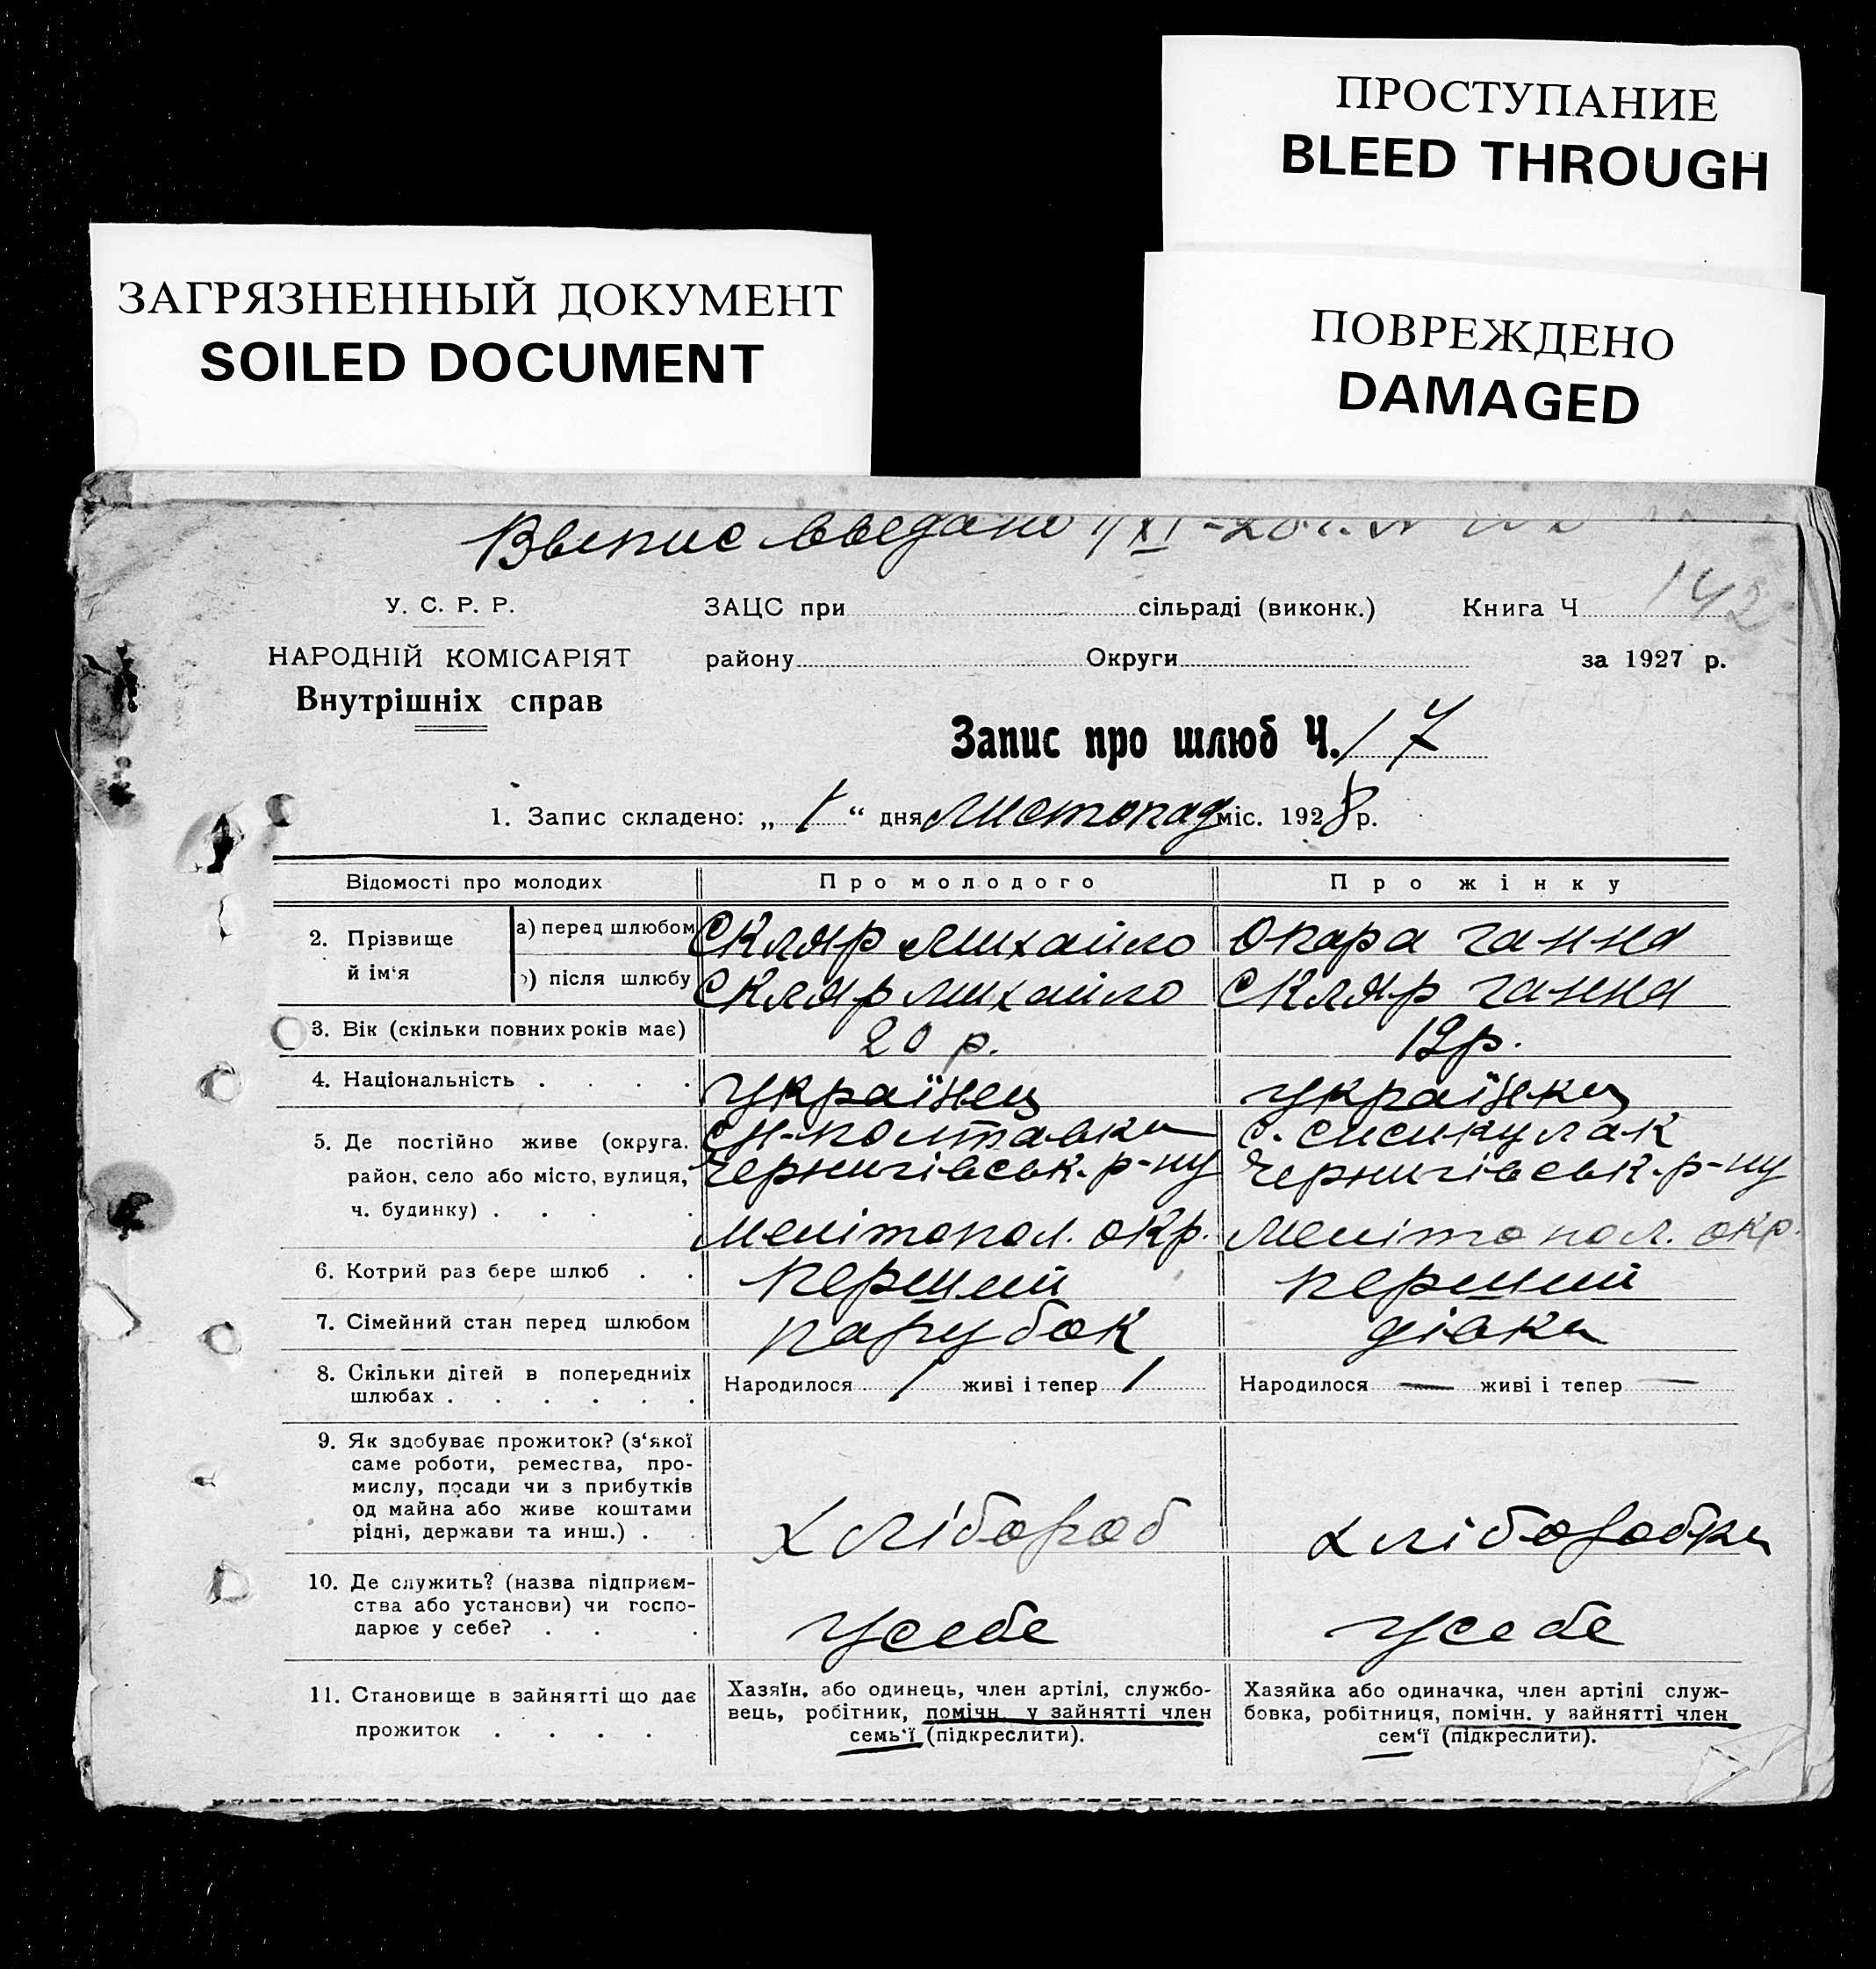 ПРОСТУПАНИЕ
BLEED THROUGH
ЗАГРЯЗНЕННЫЙ ДОКУМЕНТ
SOILED DOCUMENT
ПОВРЕЖДЕНО
DAMAGED
142
У. С. Р. Р. ЗАЦС при сільраді (виконк.) Книга Ч
НАРОДНІЙ КОМІСАРІЯТ району Округи за 1927 р.
Внутрішніх справ
Запис про шлюб Ч. 17
1. Запис складено: „ 1 “ дня листопад міс. 1928 р.
Відомості про молодих Про молодого Про жінку
2. Прізвище й ім‘я а) перед шлюбом Скляр Михайло Опара Ганна
б) після шлюбу Скляр Михайло Скляр Ганна
3. Вік (скільки повних років має) 20 р. 19 р.
4. Національність . . . . Українец Українка
5. Де постійно живе (округа. с. Н-Полтавка с. Сисикулак
район, село або місто, вулиця, Чернигівськ. р-ну Чернигівськ. р-ну
ч. будинку) . . . . Мелітопол. окр. Мелітопол. окр.
6. Котрий раз бере шлюб . . перший перший
7. Сімейний стан перед шлюбом парубок дівка
8. Скільки дітей в попередніх Народилося / живі і тепер / Народилося — живі і тепер —
шлюбах . . . . . .
9. Як здобуває прожиток? (з‘якої
саме роботи, ремества, про-
мислу, посади чи з прибутків
од майна або живе коштами
рідні, держави та инш.) . . хлібороб хліборобка
10. Де служить? (назва підприєм-
ства або установи) чи госпо-
дарює у себе? . . . усебе усебе
11. Становище в зайнятті що дає Хазяїн, або одинець, член артілі, службо- Хазяйка або одиначка, член артілі служ-
прожиток . . . . . вець, робітник, помічн. у зайнятті член бовка, робітниця, помічн. у зайнятті член
семь‘ї (підкреслити). сем‘ї (підкреслити).